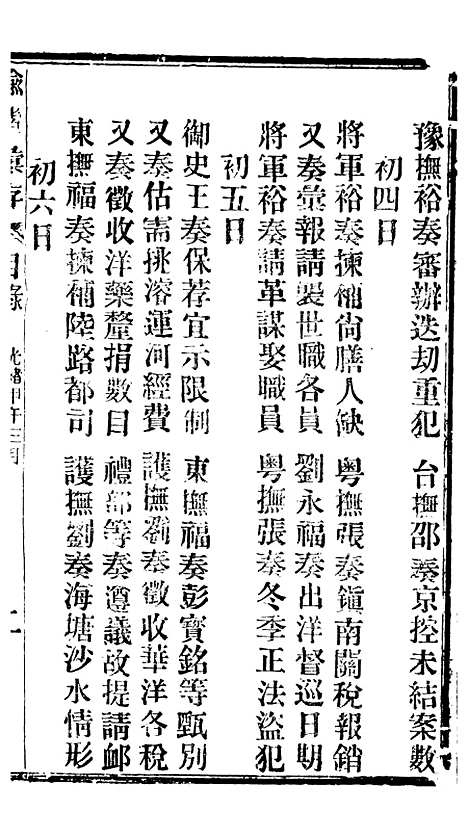 豫撫裕奏審辦迭劫重犯　台撫邵奏京控未結案數
初四日
將軍裕奏揀補尙膳人缺　粤撫張奏鎭南關稅報銷
又奏彙報請襲世職各員　劉永福奏出洋督巡日期
將軍裕奏請革謀娶職員　粤撫張奏冬季正法盜犯
初五日
御史王奏保荐宜示限制　東撫福奏彭寳銘等甄別
又奏估需挑濬運河經費　護撫劉奏徵收華洋各稅
又奏徵收洋藥釐捐數目　禮部等奏遵議故提請卹
東撫福奏揀補陸路都司　護撫劉奏海塘沙水情形
初六日
諭摺彙存　目錄　光緒甲午三月　二